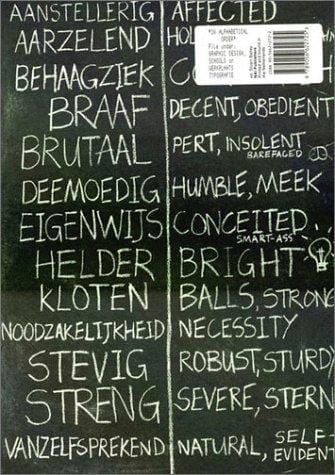 AANSTELLERIG AFFECTED
AARZELEND HO
BEHAAGZIEK
BRAAF DECENT, OBEDIENT
BRUTAAL PERT, INSOLENT
BAREFACED
DEEMOEDIG HUMBLE, MEEK
EIGENWIJS CONCEITED
SMART-ASS
HELDER BRIGHT
KLOTEN BALLS, STRONG
NOODZAKELIJKHEID NECESSITY
STEVIG ROBUST, STURD
STRENG SEVERE, STERN
VANZELFSPREKEND NATURAL, SELF-
EVIDEN
"IN ALPHABETICAL
ORDER"
File under:
GRAPHIC DESIGN,
SCHOOLS or
WERKPLAATS
TYPOGRAFIE